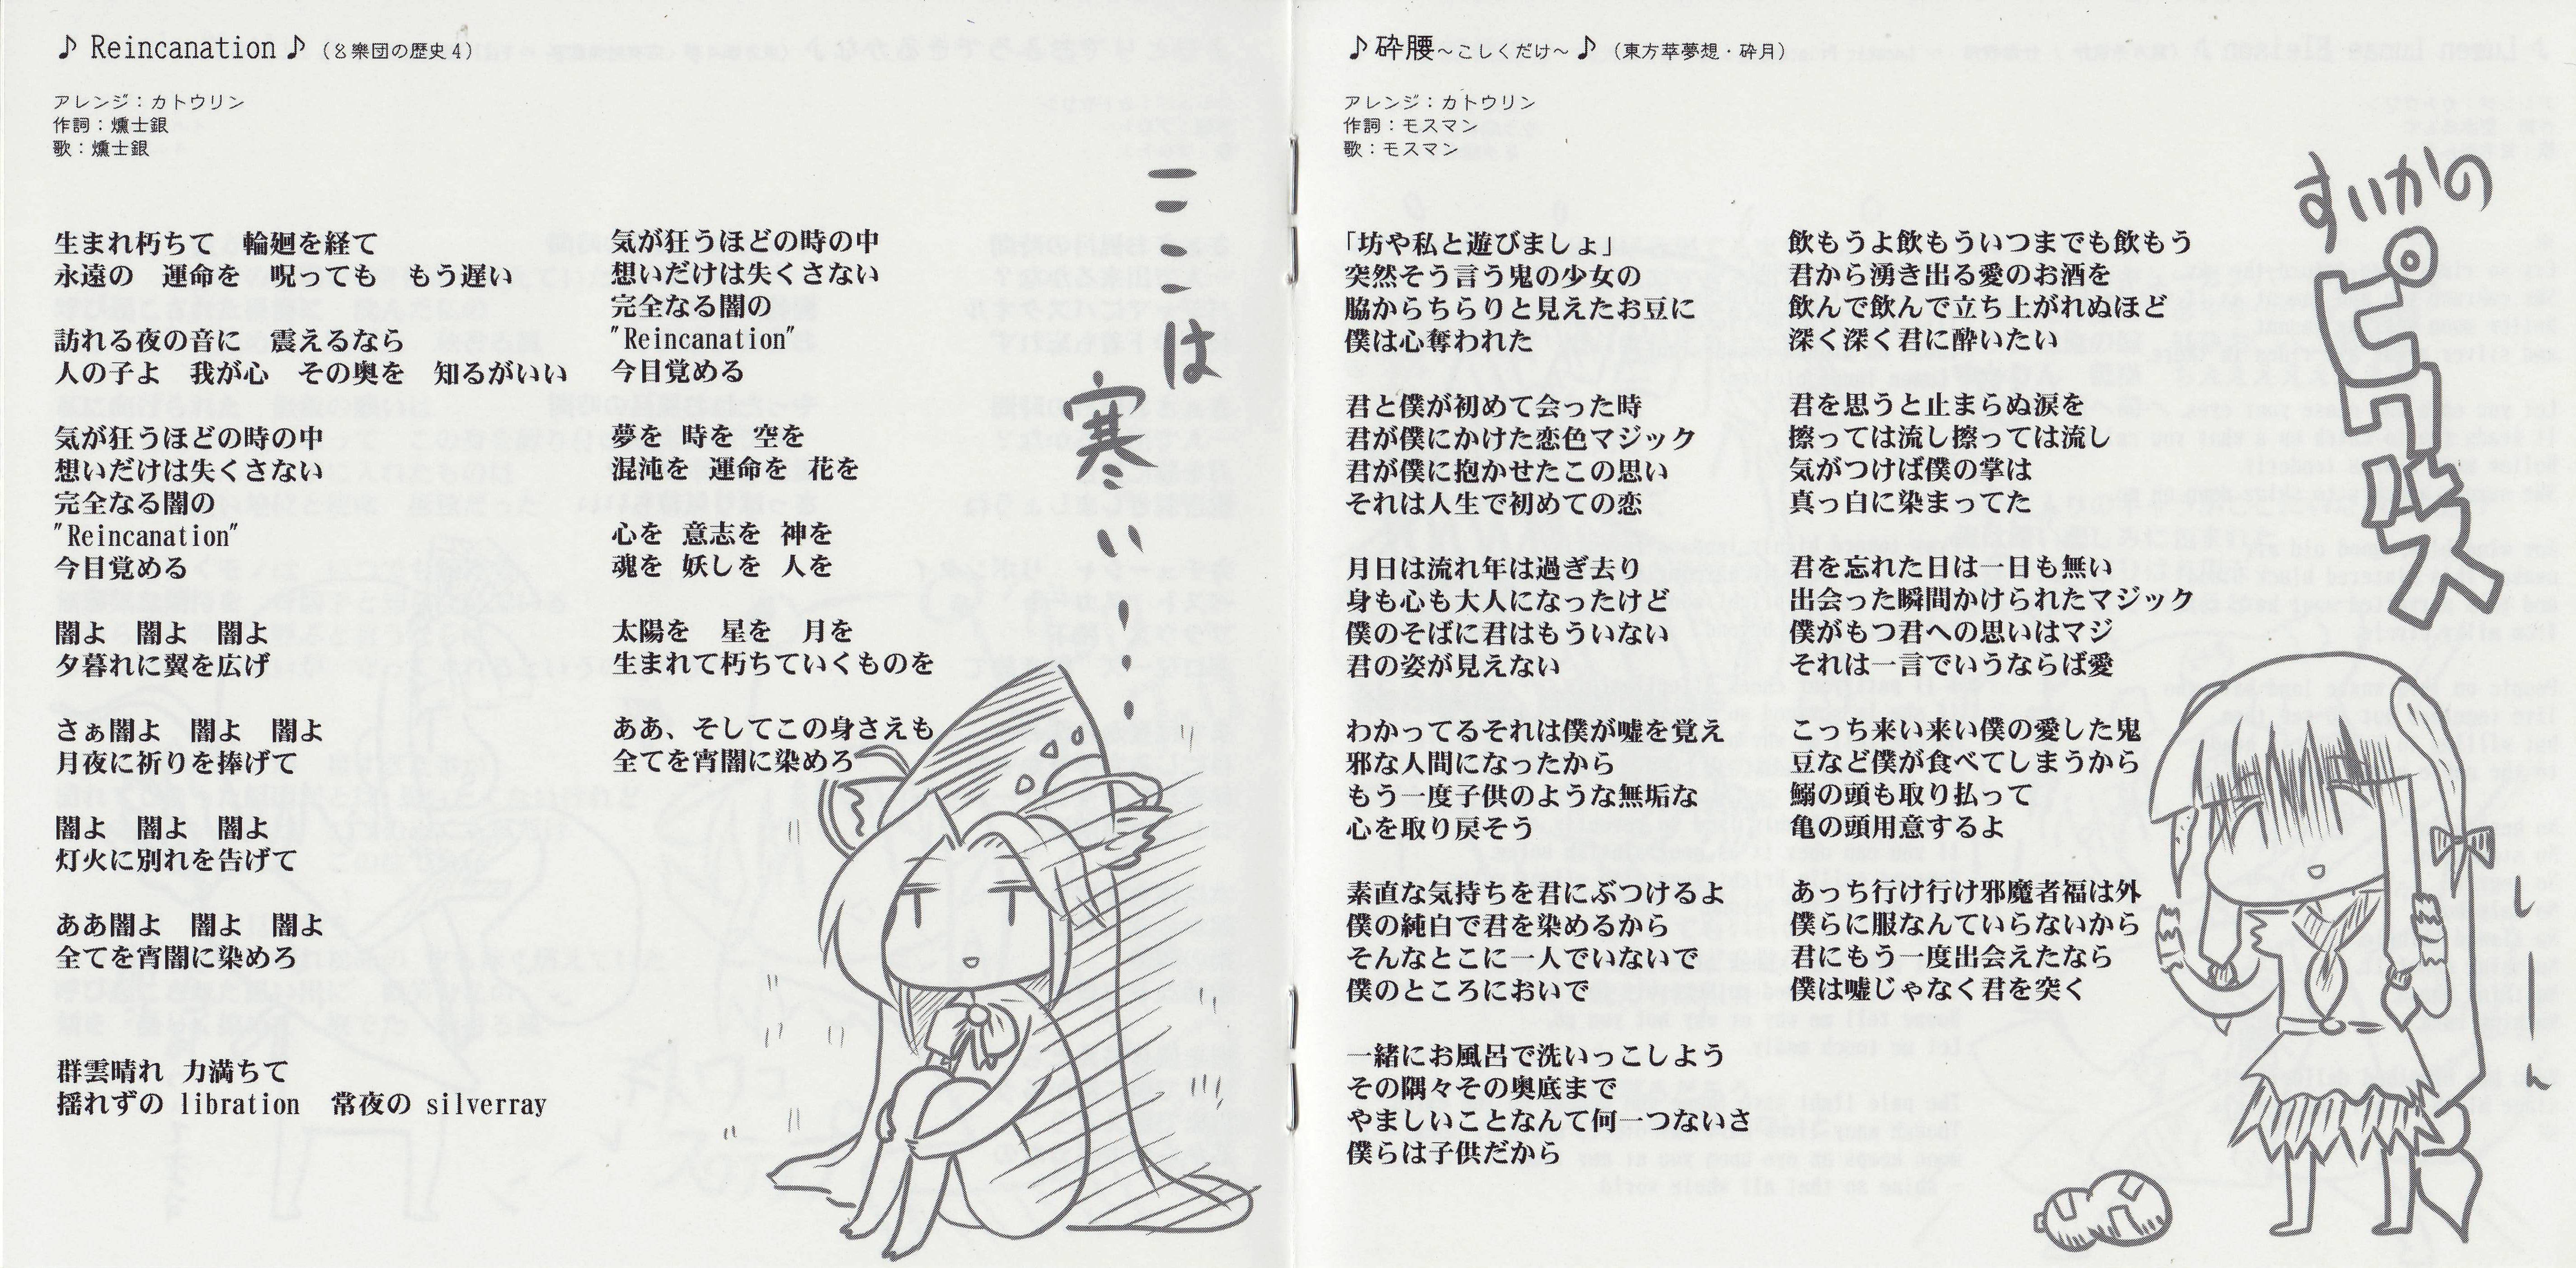 ♪ Reincanation ♪ (幺樂団の歴史4)
アレンジ：カトウリン
作詞：燻士銀
歌：燻士銀
生まれ朽ちて　輪廻を経て
永遠の　運命を　呪っても　もう遅い
訪れる夜の音に　震えるなら
人の子よ　我が心　その奥を　知るがいい
気が狂うほどの時の中
想いだけは失くさない
完全なる闇の
"Reincanation"
今目覚める
闇よ　闇よ　闇よ
夕暮れに翼を広げ
さぁ闇よ　闇よ　闇よ
月夜に祈りを捧げて
闇よ　闇よ　闇よ
灯火に別れを告げて
ああ闇よ　闇よ　闇よ
全てを宵闇に染めろ
群雲晴れ 力満ちて
揺れずの libration　常夜の silverray
気が狂うほどの時の中
想いだけは失くさない
完全なる闇の
"Reincanation"
今目覚める
夢を 時を 空を
混沌を 運命を 花を
心を 意志を 神を
魂を 妖しを 人を
太陽を　星を　月を
生まれて朽ちていくものを
ああ、そしてこの身さえも
全てを宵闇に染めろ
ここは
寒い……
♪砕腰～こしくだけ～♪ (東方萃夢想・砕月)
アレンジ：カトウリン
作詞：モスマン
歌：モスマン
「坊や私と遊びましょ」
突然そう言う鬼の少女の
脇からちらりと見えたお豆に
僕は心奪われた
君と僕が初めて会った時
君が僕にかけた恋色マジック
君が僕に抱かせたこの思い
それは人生で初めての恋
月日は流れ年は過ぎ去り
身も心も大人になったけど
僕のそばに君はもういない
君の姿が見えない
わかってるそれは僕が嘘を覚え
邪な人間になったから
もう一度子供のような無垢な
心を取り戻そう
素直な気持ちを君にぶつけるよ
僕の純白で君を染めるから
そんなとこに一人でいないで
僕のところにおいで
一緒にお風呂で洗いっこしよう
その隅々その奥底まで
やましいことなんて何一つないさ
僕らは子供だから
飲もうよ飲もういつまでも飲もう
君から湧き出る愛のお酒を
飲んで飲んで立ち上がれぬほど
深く深く君に酔いたい
君を思うと止まらぬ涙を
擦っては流し擦っては流し
気がつけば僕の掌は
真っ白に染まってた
君を忘れた日は一日も無い
出会った瞬間かけられたマジック
僕がもつ君への思いはマジ
それは一言でいうならば愛
こっち来い来い僕の愛した鬼
豆など僕が食べてしまうから
鰯の頭も取り払って
亀の頭用意するよ
あっち行け行け邪魔者福は外
僕らに服なんていらないから
君にもう一度出会えたなら
僕は嘘じゃなく君を突く
すいかの
ピクルス
しーん